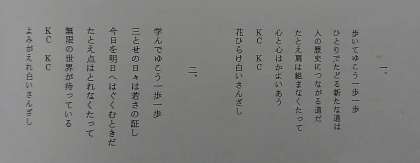 一、
歩いてゆこう一歩一歩
ひとりでたどる新たな道は
人の歴史につながる道だ
たとえ肩は組まなくたって
心と心はかよいあう
KC KC
花ひらけ白いさんざし
二、
学んでゆこう一歩一歩
三とせの日々は若さの証し
今日を明日へはぐくむときだ
たとえ点はとれなくたって
無限の世界が待っている
KC KC
よみがえれ白いさんざし